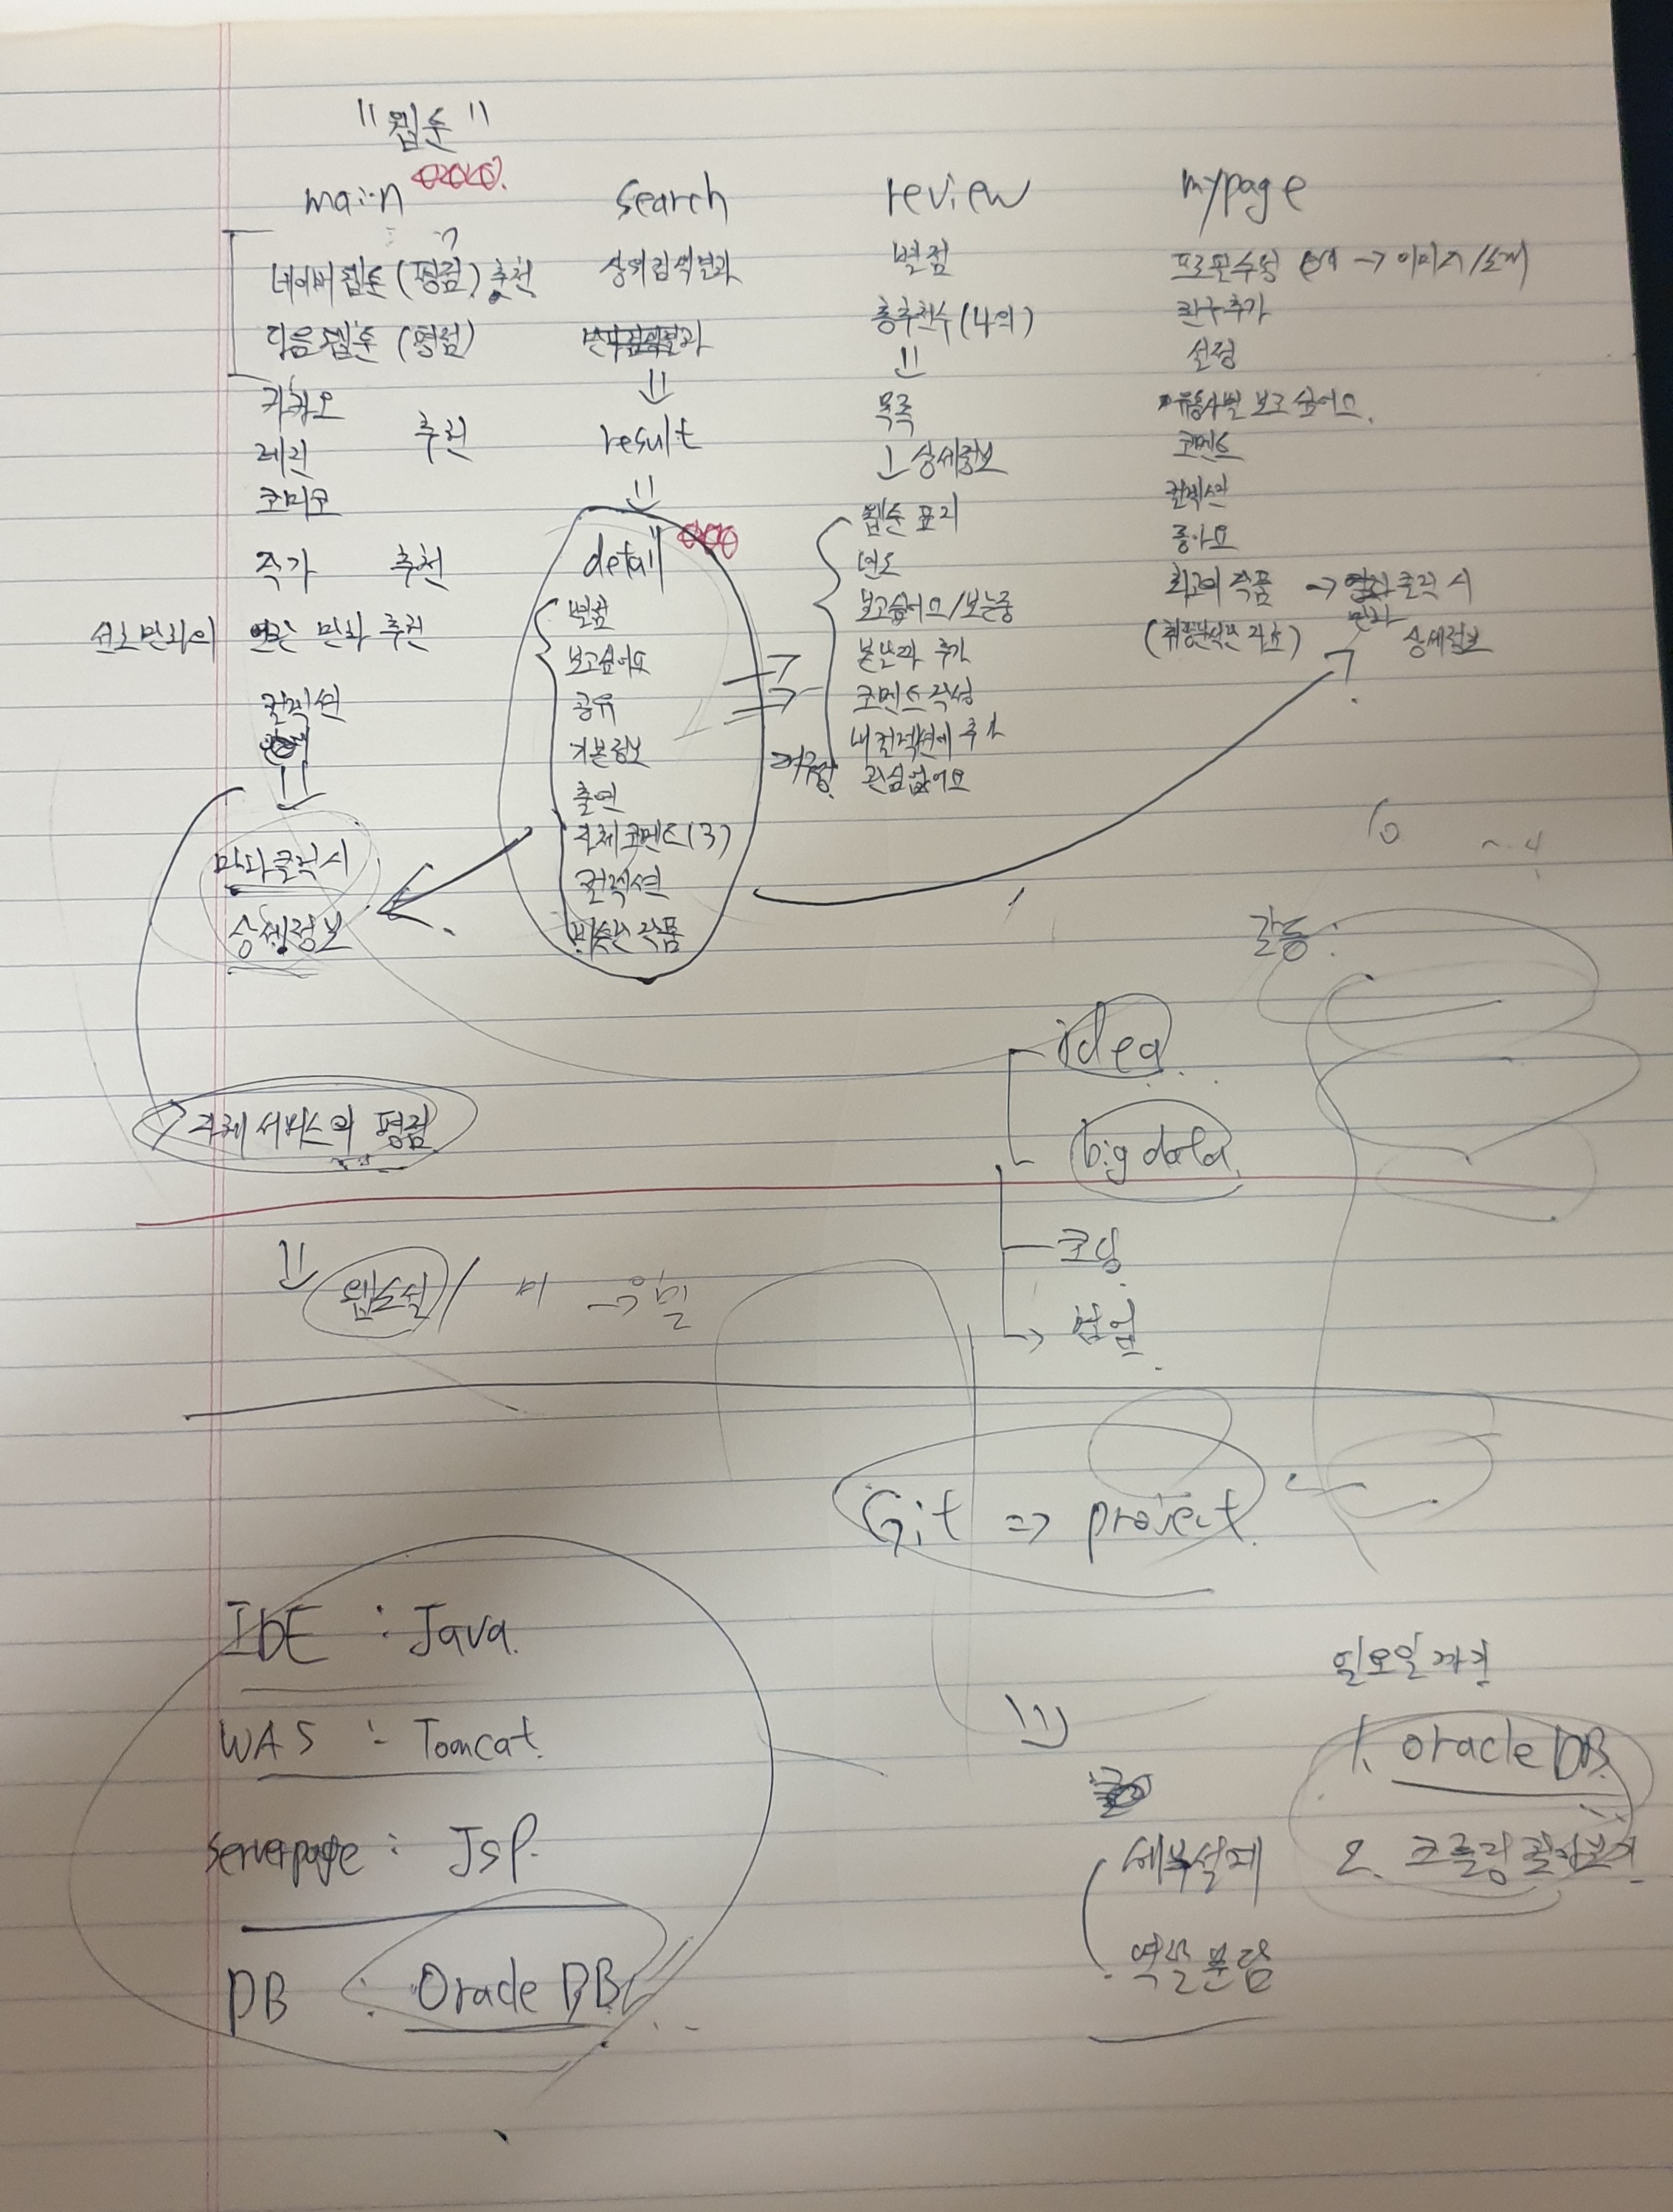 "웹툰"
main
네이버 웹툰 (평점) 추천
다음웹툰 (평점)
카카오
레진 추천
코미코
작가 추천
선호 만화의 만화 추천
컬렉션
만화클릭시
상세정보
자체 서비스의 평점
search
상위검색결과
result
detail
별점
보고싶어요
공유
기본정보
출연
자체 코멘트(3)
컬렉션
비슷한 작품
review
별점
총추천수
목록
상세정보
웹툰 표지
년도
보고싶어요/보는중
본만화 추가
코멘트 작성
내 컬렉션에 추가
관심없어요
mypage
프로필수정 → 이미지/소개
친구추가
설정
유통사별 보고싶어요.
코멘트
컬렉션
좋아요
최고의 작품 → 클릭 시
만화
상세정보
idea
big data
코딩
웹소설 /
Git => project
IDE : Java
WAS : Tomcat
serverpage : JSP
DB : Oracle DB
세부설계
역할분담
일요일까지
1. oracle DB
2. 크롤링